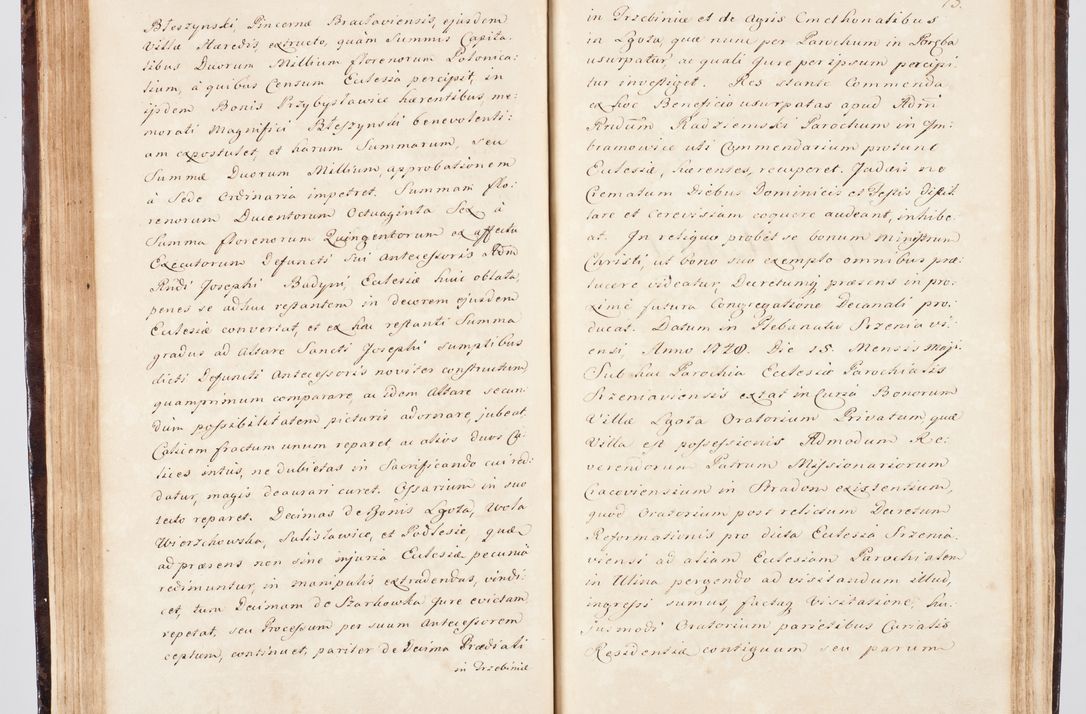 Błeszynski, Pincernæ Bracłaviensis, ejusdem
Villæ Hæredis, extructo, quàm Summis Capita:
libus Duorum Millium florenorum Polonica:
lium, à quibus Censum Ecclesia percipit, in
ijsdem Bonis Przybysławice hærentibus, me:
morati Magnifici Błeszynski benevolenti:
am expostulet, et harum Summarum, seu
Summæ Duorum Millium, approbationem
à Sede Ordinaria impetret. Summam flo:
renorum Ducentorum Octuaginta Sex à
Summa florenorum Quingentorum ex affectu
Executorum Defuncti Sui Antecessoris Adm
Rndi Josephi Badyni, Ecclesiæ huic oblata,
penes se adhuc restantem in decorem ejusdem
Ecclesiæ convertat, et ex hac restanti Summa
gradus ad Altare Sancti Josephi sumptibus
dicti Defuncti Antecessoris noviter constructum
quamprimum comparare, ac idem Altare secun:
dùm possibilitatem picturis adornare, jubeat.
Calicem fractum unum reparet, ac alios duos Ca:
lices intus, ne dubietas in Sacrificando cui red:
datur, magis deaurari curet. Ossarium in suo
tecto reparet. Decimas de Bonis Lgota, Wola
Wierzchowska, Sulisławice, et Podlesie, quæ
ad præsens non sine injuria Ecclesiæ pecunià
redimuntur, in manipulis extradendas, vindi:
cet, tum Decimam de Szarkowka Jure evictam
repetat, seu Processum per suum Antecessorem
ceptum, continuet, pariter de Decima Prædiali
in Trzebiniæ
73.
in Trzebiniæ et de Agris Cmethonalibus
in Lgota, quæ nunc per Parochum in Poręba
usurpatur, ac quali Jure per ipsum percipi:
tur investiget. Res stante Commenda,
ex hoc Beneficio usurpatas apud Adm
Rndum Radziemski Parochum in Im:
bramowice uti Commendarium protunc
Ecclesiæ, hærentes, recuperet. Judæis ne
Crematum Diebus Dominicis et Festis distil:
lare et Cerevisiam coquere audeant, inhibe:
at. In reliquo probet se bonum Ministrum
Christi, ut bono suo exemplo omnibus præ:
lucere videatur, Decretumq præsens in pro:
ximè futura Congregatione Decanali pro:
ducat. Datum in Plebanatu Srzeniavi:
ensi, Anno 1748. Die 15. Mensis Maji.
Sub hac Parochia Ecclesiæ Parochialis
Srzeniaviensis extat in Curia Bonorum
Villæ Lgota Oratorium Privatum, quæ
Villa est possessionis Admodum Re:
verendorum Patrum Missionariorum
Cracoviensium in Stradom existentium,
quod Oratorium post relictum Decretum
Reformationis pro dicta Ecclesia Srzenia:
viensi ad aliam Ecclesiam Parochialem
in Ulina pergendo ad visitandum illud,
ingressi sumus, factaq Visitatione, hu:
jusmodi Oratorium parietibus Curialis
Residentiæ contiguum seu parvum